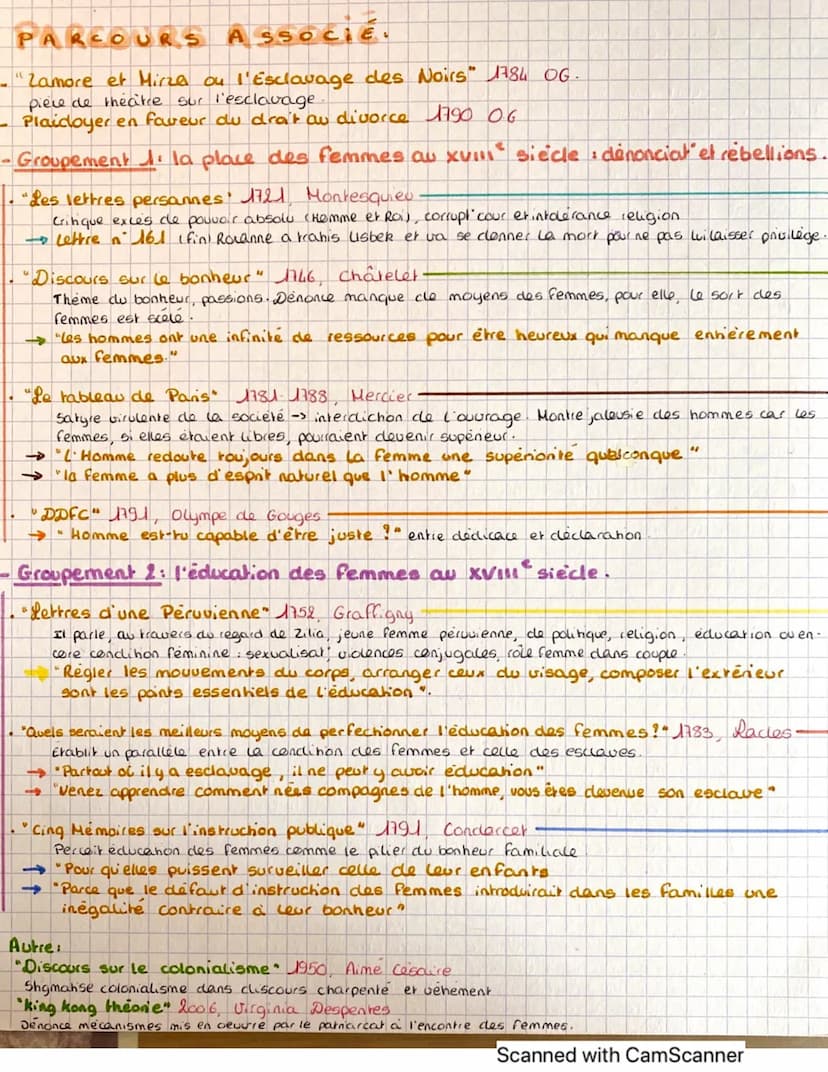 PARCOURS ASSOCIÉ.
- "Zamore et Mirza ou l'Esclavage des Noirs" 1784 OG.
pièce de théâtre sur l'esclavage.
- Plaidoyer en faveur du droit au divorce 1790 OG
- Groupement 1: la place des femmes au XVIIIe siècle : dénonciat° et rébellions.
. "Les lettres persannes" 1721, Montesquieu
Critique excès de pouvoir absolu (Homme et Roi), corrupt° cour et intolérance religion
→ Lettre n°161 (fin) Roxanne a trahis Usbek et va se donner la mort pour ne pas lui laisser privilège.
. "Discours sur le bonheur" 1746, Châtelet
Thème du bonheur, passions. Dénonce manque de moyens des femmes, pour elle, le sort des
femmes est scélé.
→ "Les hommes ont une infinité de ressources pour être heureux qui manque entièrement
aux femmes."
. "Le tableau de Paris" 1781-1788, Mercier
Satyre virulente de la société -> interdiction de l'ouvrage. Montre jalousie des hommes car les
femmes, si elles étaient libres, pourraient devenir supérieur.
→ "L'Homme redoute toujours dans la femme une supériorité quelconque"
→ "la femme a plus d'esprit naturel que l'homme"
. "DDFC" 1791, Olympe de Gouges
→ "Homme est-tu capable d'être juste ?" entre dédicace et déclaration.
- Groupement 2: l'éducation des femmes au XVIIIe siècle.
. "Lettres d'une Péruvienne" 1752, Graffigny
Il parle, au travers du regard de Zilia, jeune femme péruvienne, de politique, religion, éducation ou en-
core condition féminine : sexualisat°, violences conjugales, rôle femme dans couple.
→ "Régler les mouvements du corps, arranger ceux du visage, composer l'extérieur
sont les points essentiels de l'éducation".
. "Quels seraient les meilleurs moyens de perfectionner l'éducation des femmes?" 1783, Laclos
Etablit un parallèle entre la condition des femmes et celle des esclaves.
→ "Partout où il y a esclavage, il ne peut y avoir éducation"
→ "Venez apprendre comment nées compagnes de l'homme, vous êtes devenue son esclave"
. "Cinq Mémoires sur l'instruction publique" 1791, Condorcet
Perçoit éducation des femmes comme le pilier du bonheur familiale
→ "Pour qu'elles puissent surveiller celle de leur enfants
→ "Parce que le défaut d'instruction des femmes introduirait dans les familles une
inégalité contraire à leur bonheur"
Autre:
"Discours sur le colonialisme" 1950, Aimé Césaire
Stigmatise colonialisme dans discours charpenté et véhément
"King kong théorie" 2006, Virginia Despentes
Dénonce mécanismes mis en oeuvre par le patriarcat à l'encontre des femmes.
Scanned with CamScanner